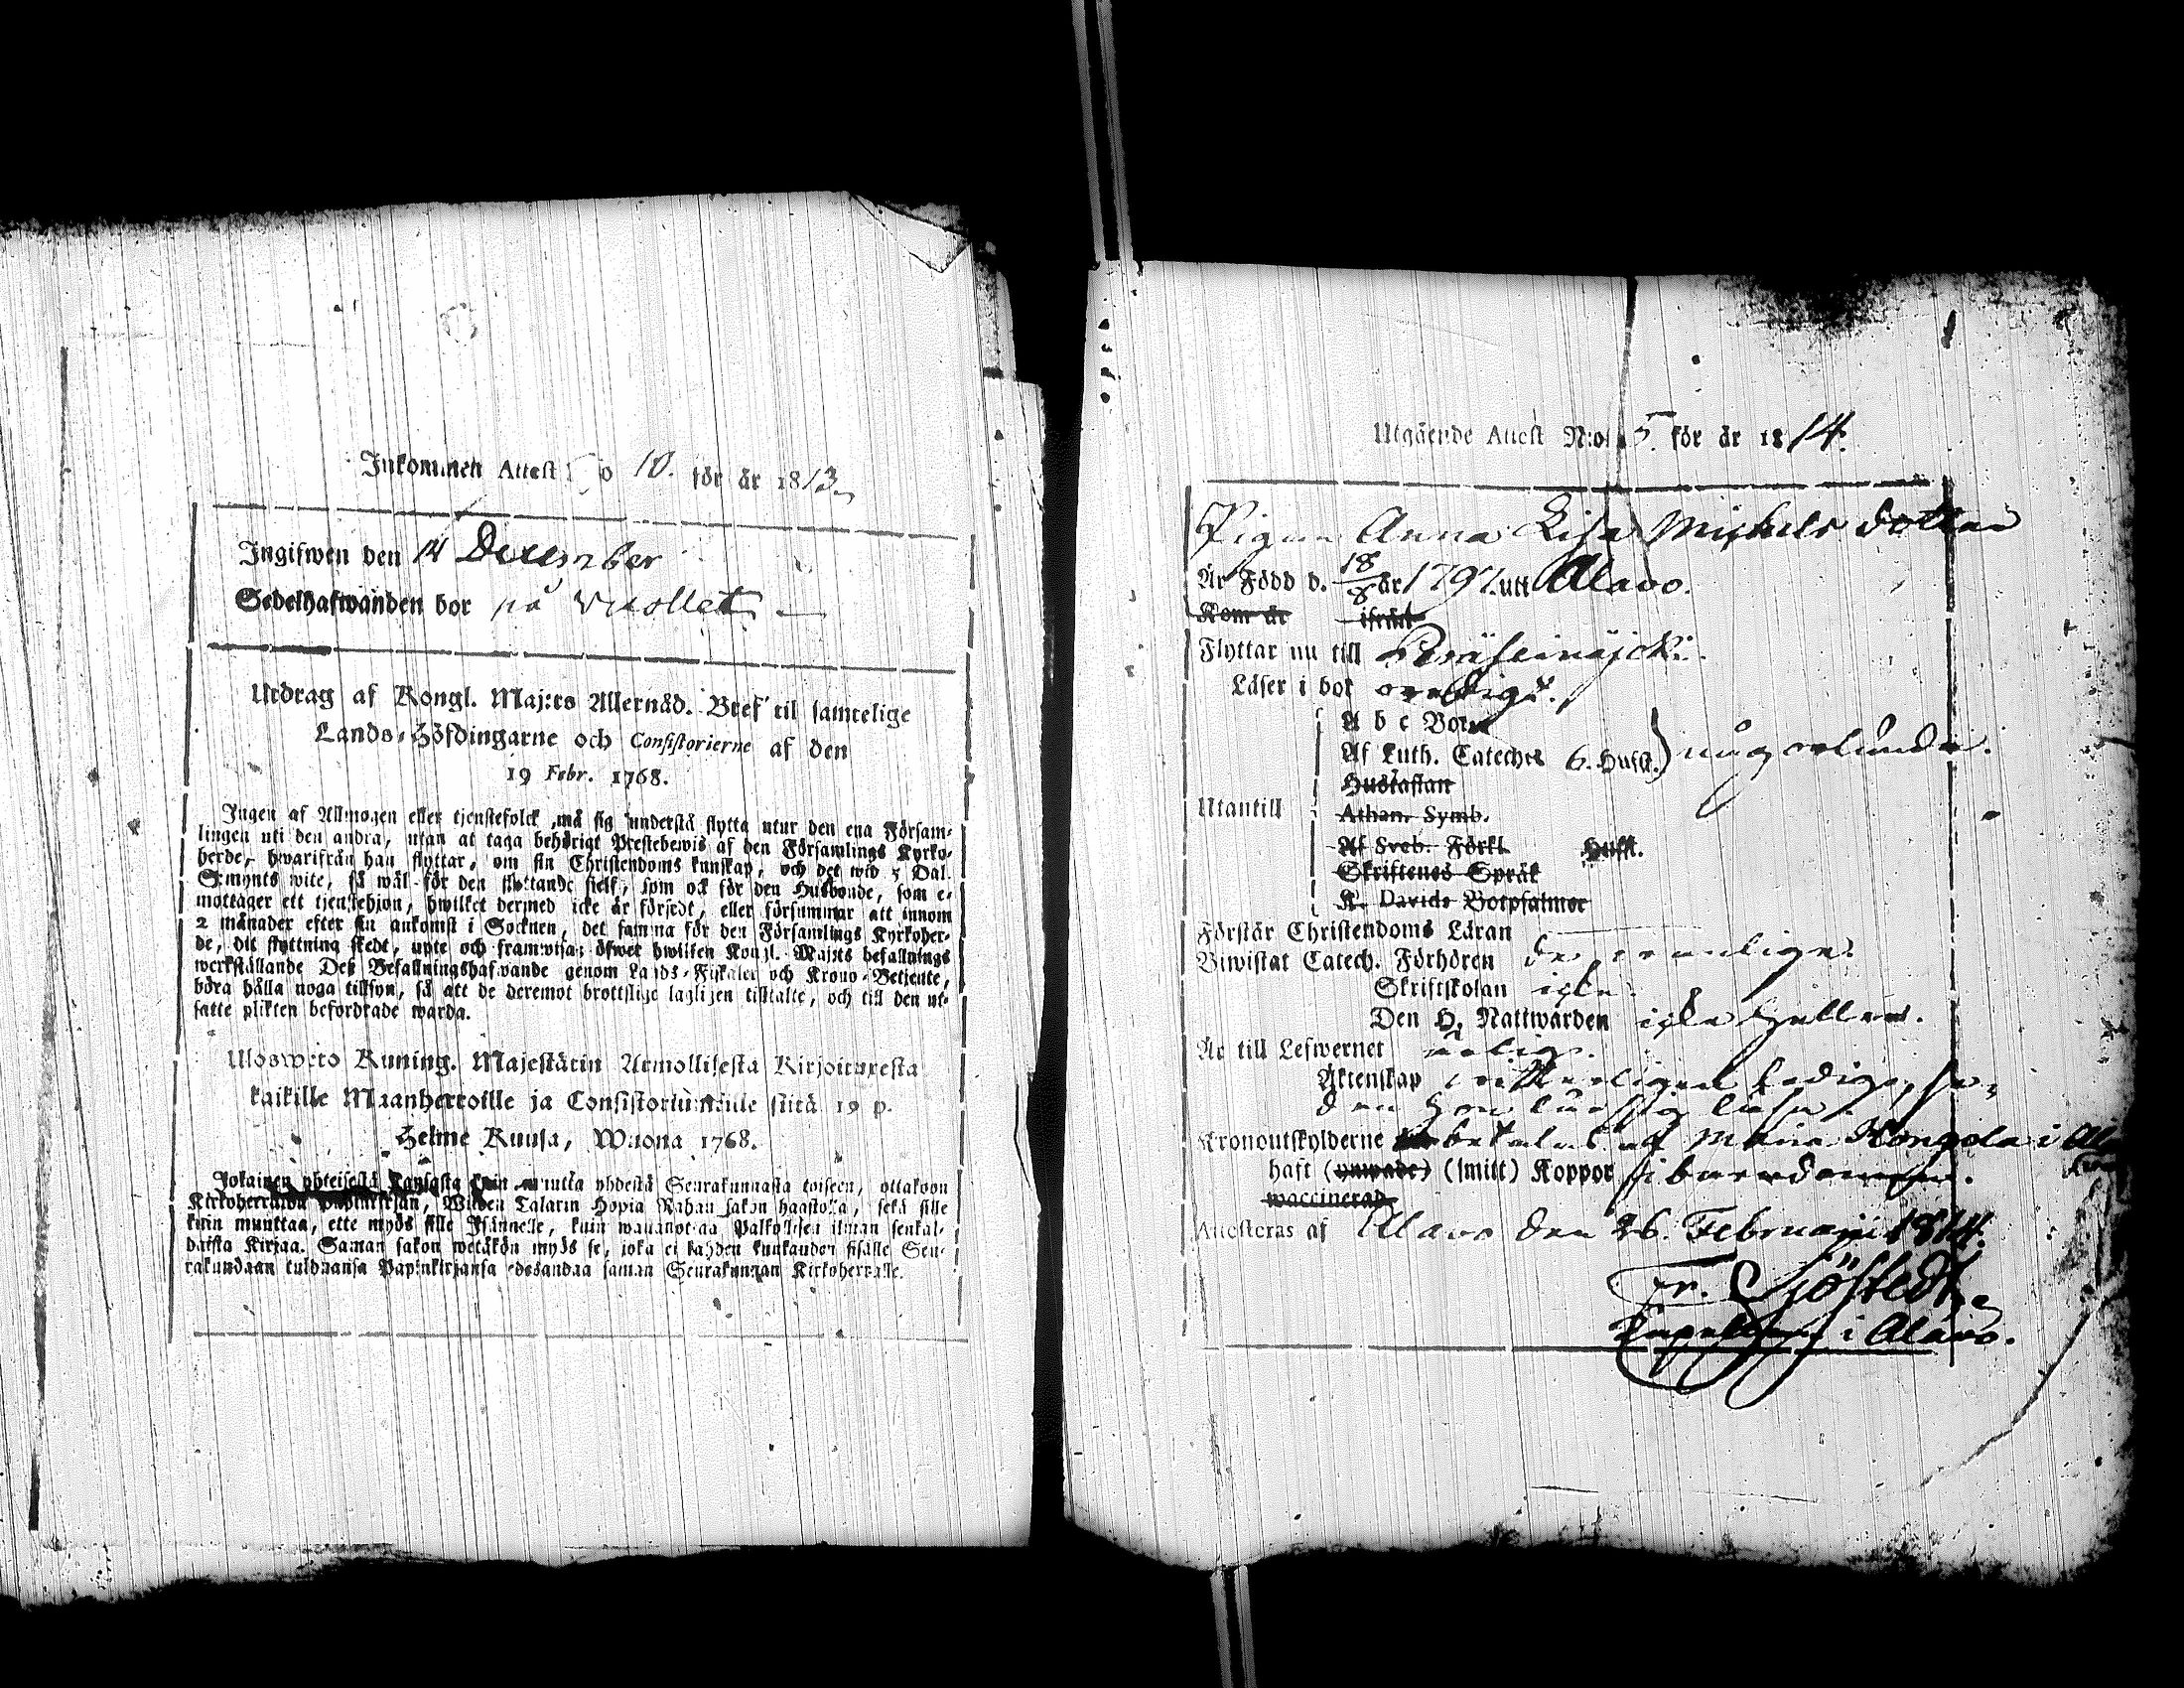 Inkommen Attest N:o 10. för år 1813.
Ingifwen den 14 December
Sedelhafwanden bor på
Utdrag af Kongl. Maj:ts Allernåd. Bref til samtelige
Lands-Höfdingarne och Consistorierne af den
19 Febr. 1768.
Ingen af Allmogen eller tjenstefolck må sig understå flytta utur den ena Församlingen
lingen uti den andra, utan at taga behörigt Prestebewis af den Församlings Kyrko-
herde, hwarifrån han flyttar, om sin Christendoms kunskap, och det wid 5 Dal.
S:mynts wite, så wäl för den flyttande sielf, som ock för den Husbonde, som e-
mottager ett tjenstehjon, hwilket dermed icke är försedt, eller försummar att innom
2 månader efter sin ankomst i Socknen, det samma för den Församlings Kyrkoher-
de, dit flyttning skedt, upte och framwisa; öfwer hwilken Kongl. Maj:ts befallnings
werkställande Deß Befallningshafwande genom Lands-Fiskaler och Krono-Betjente,
böra hålla noga tillsyn, så att de deremot brottslige lagligen tilltalte, och till den ut-
satte plikten befordrade warda.
Ulosweto Kuning. Majestätin Armollisesta Kirjoituxesta
kaikille Maanherroille ja Consistoriumeille siitä 19 p.
Helme Kuusa, Wuona 1768.
Jokainen yhteisestä Kansasta kuin muutta yhdestä Seurakunnasta toiseen, ottakoon
Kirkoherralda Papinkirjan, Wijden Talarin Hopia Rahan sakon haastolla, sekä sille
kuin muuttaa, ette myös sille Isännelle, kuin wastanottaa Palkollisen ilman senkal-
daista Kirjaa. Saman sakon wetäkön myös se, joka ei kahden kuukauden sisälle Seu-
rakundaan tulduansa Papinkirjansa edesandaa saman Seurakunnan Kirkoherralle.
Utgående Attest N:o 5. för år 1814.
Pigan Anna Lisa Michels dotter
Är Född d. 18/8 år 1797. utt Alavo.
Kom år ifrån
Flyttar nu till Peräseinäjoki.
Läser i bok
A b c Boken
Af Luth. Cateches 6. Hufst.) någorlunda.
Hustaflan
Utantill
Athan. Symb.
Af Sveb. Förkl. Hufst.
Skriftenes Språk
K. Davids Botpsalmer
Förstår Christendoms Läran
Biwistat Catech. Förhören
Skriftskolan icke.
Den H. Nattwarden icke heller.
Är till Lefwernet
Äktenskap ledig,
Kronoutskylderne betalas af
haft (ympade) (smitt) Koppor i barndomen.
waccinerad
Attesteras af Alavo den 26. Februarii 1814.
Fr. Sjöstedt
Kapellan i Alavo.